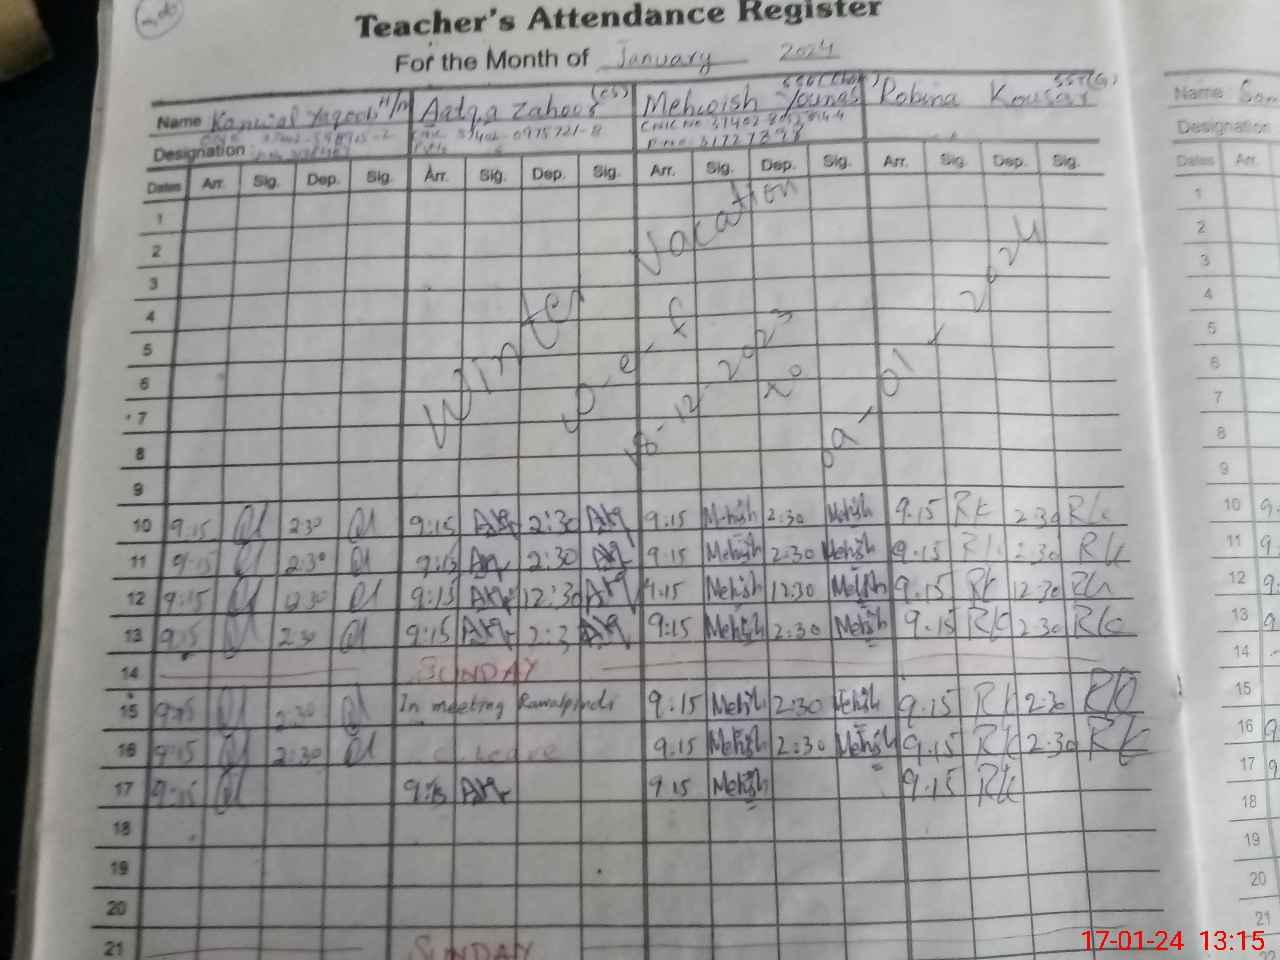 Teacher's Attendance Register
For the Month of January 2024
Name Kanwal Yaqoob H/M Aatqa Zahoor (CS) Mehwish Younas Robina Kousar SST(G) Name
Designation CNIC 37402-0975721-8 CNIC No Designation
Dates Arr. Sig. Dep. Sig. Arr. Sig. Dep. Sig. Arr. Sig. Dep. Sig. Arr. Sig. Dep. Sig. Dates Arr.
1 1
2 2
3 3
4 4
5 5
6 6
7 7
8 8
9 9
Winter Vacation
w-e-f
18-12-2023 to 09-01-2024
10 9:15 2:30 9:15 2:30 9:15 Mehish 2:30 Mehish 9.15 RK 2.30 RK 10 9.
11 9:15 2:30 9:15 2:30 9:15 Mehish 2:30 Mehish 9.15 RK 2:30 RK 11 9.
12 9:15 12:30 9:15 12:30 9:15 Mehish 12:30 Mehish 9.15 RK 12.30 RK 12 9
13 9:15 2:30 9:15 2:3 9:15 Mehish 2:30 Mehish 9.15 RK 2.30 RK 13 9
14 SUNDAY 14
15 9:15 2:30 In meeting Rawalpindi 9:15 Mehish 2:30 Mehish 9.15 RK 2:30 RK 15
16 9:15 2:30 C. Leave 9:15 Mehish 2:30 Mehish 9.15 RK 2.30 RK 16 9
17 9:15 9:15 9.15 Mehish 9.15 RK 17 9
18 18
19 19
20 20
21 SUNDAY 21
17-01-24 13:15